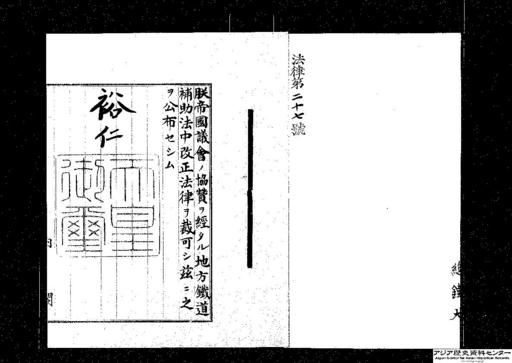 法律第二十七號
朕帝國議會ノ協賛ヲ經タル地方鐵道
補助法中改正法律ヲ裁可シ茲ニ之
ヲ公布セシム
裕仁
天皇
御璽
内閣
總
大
アジア歴史資料センター
Japan Center for Asian Historical Records